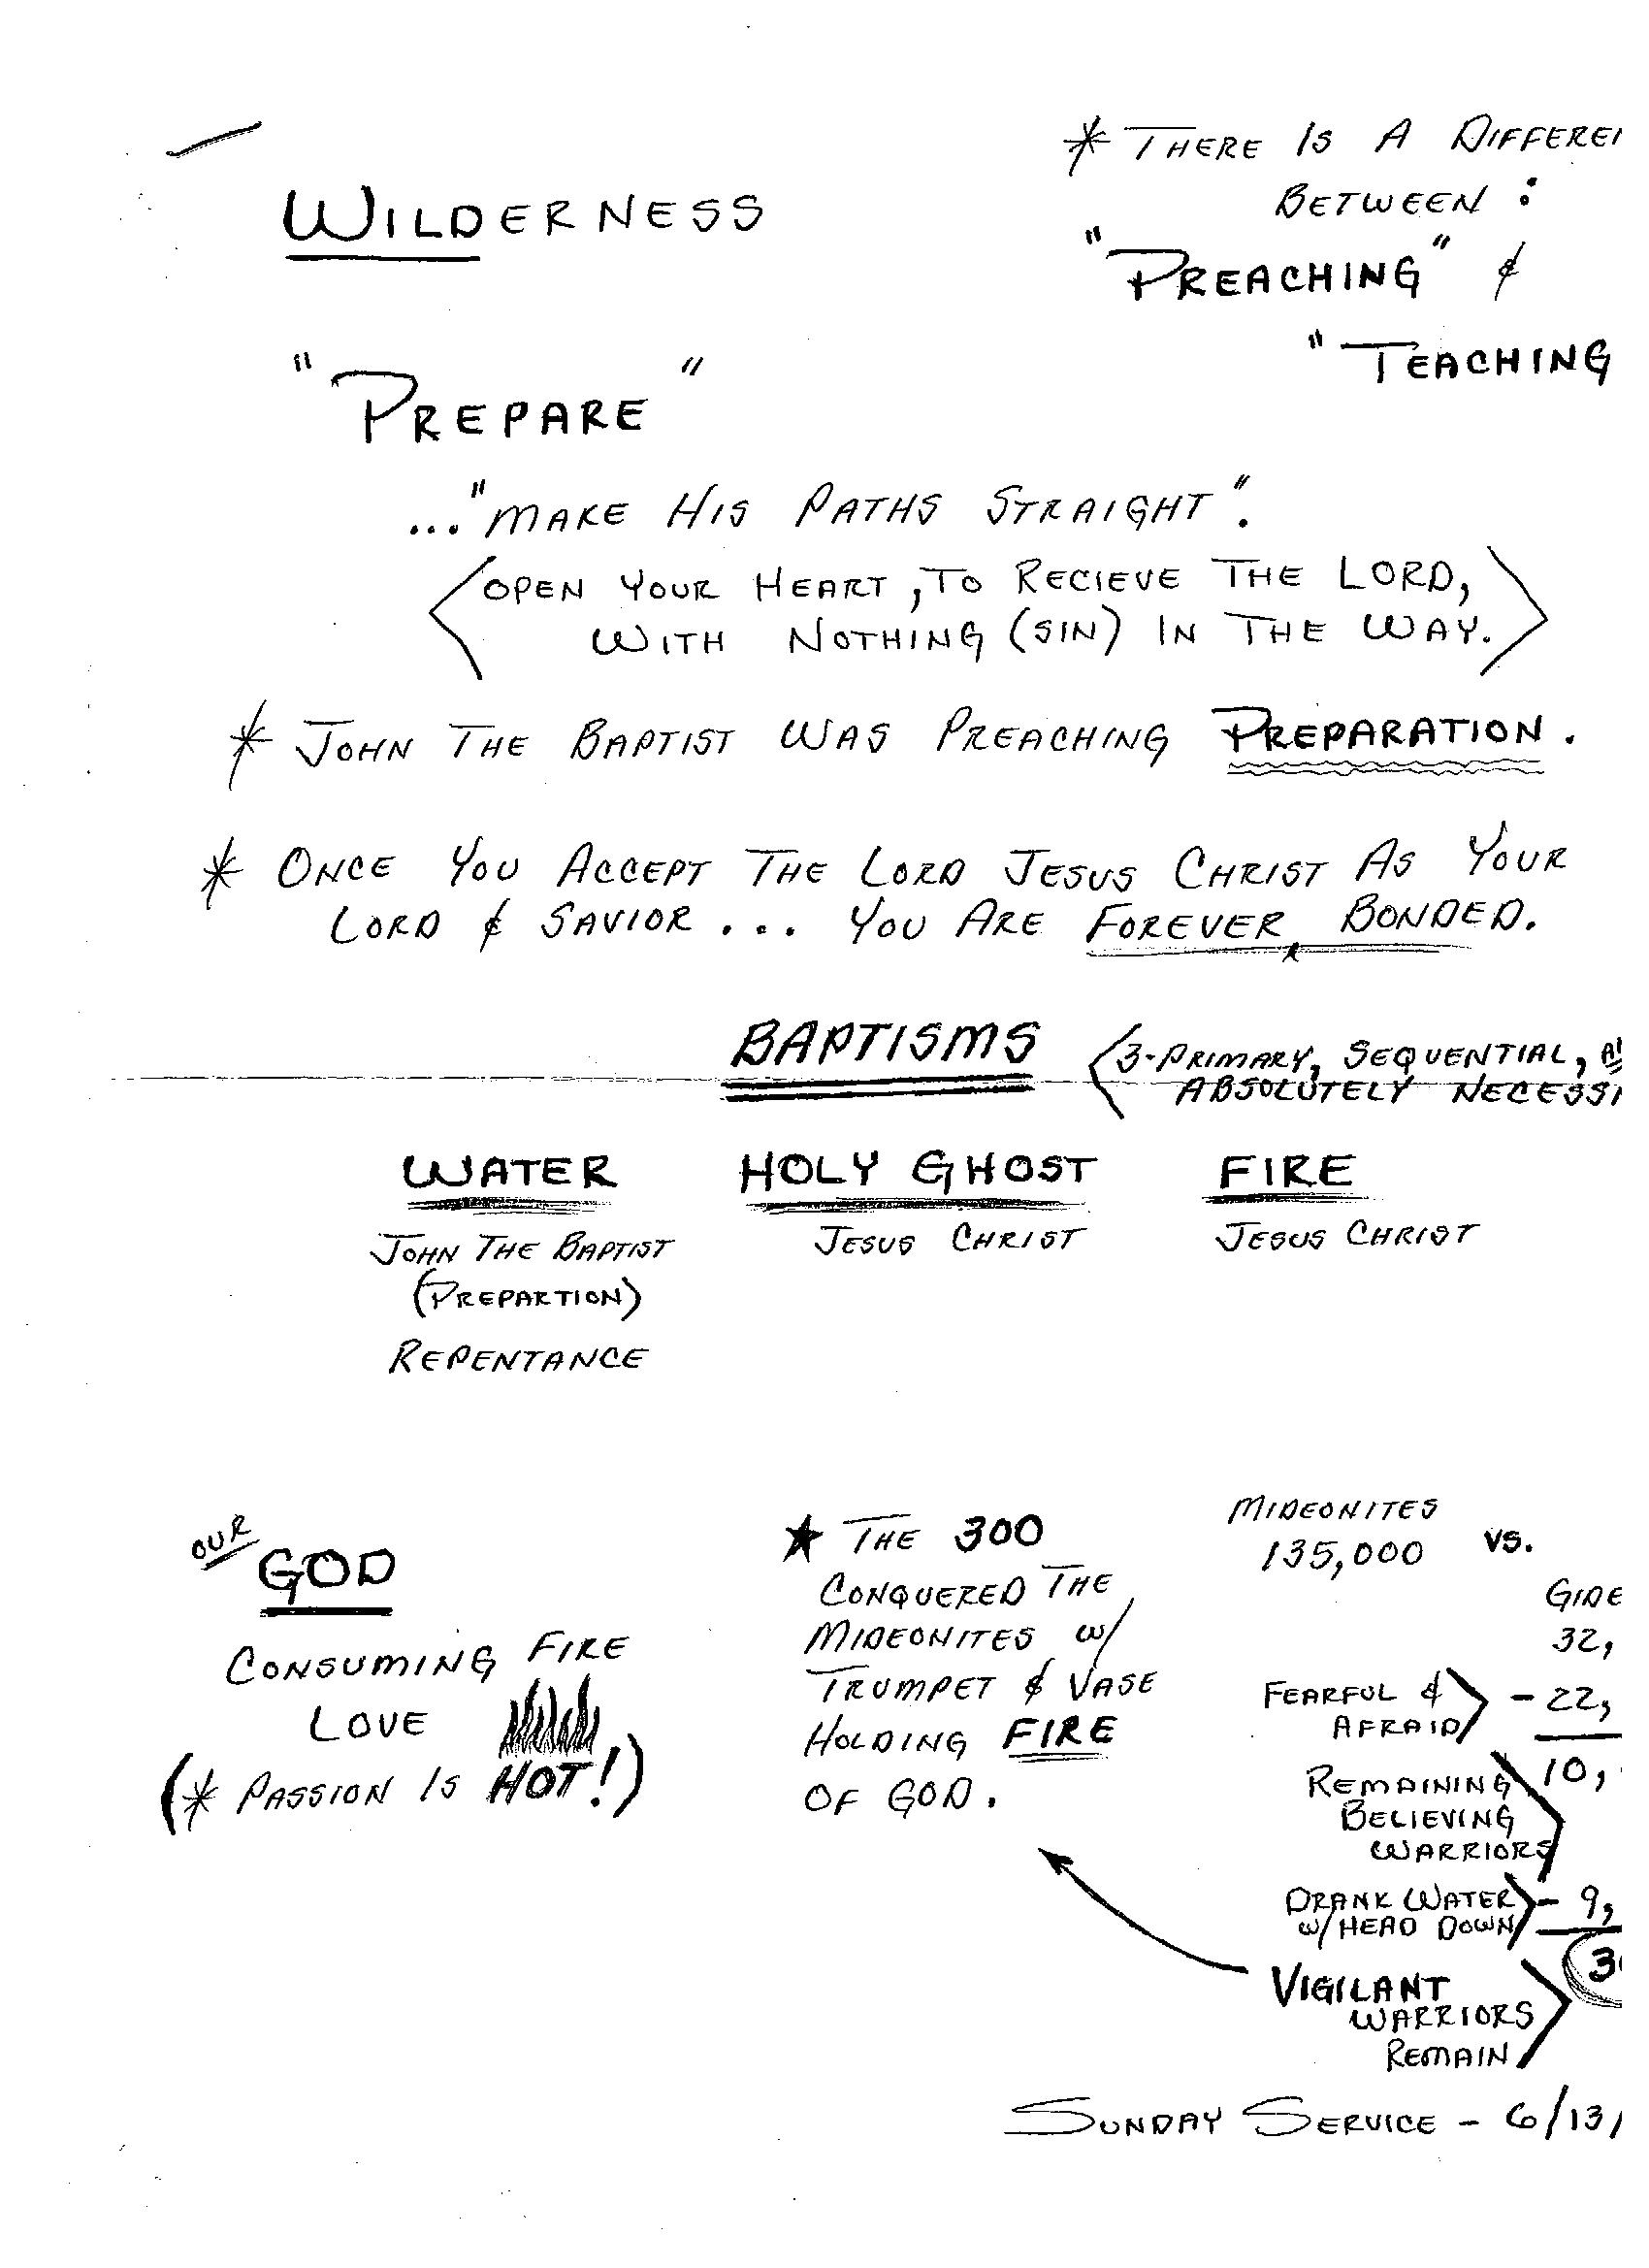 * THERE IS A DIFFEREN
BETWEEN :
"PREACHING" &
"TEACHING
WILDERNESS
"PREPARE"
..."MAKE HIS PATHS STRAIGHT".
<OPEN YOUR HEART, TO RECIEVE THE LORD,
WITH NOTHING (SIN) IN THE WAY.>
* JOHN THE BAPTIST WAS PREACHING PREPARATION.
* ONCE YOU ACCEPT THE LORD JESUS CHRIST AS YOUR
LORD & SAVIOR ... YOU ARE FOREVER BONDED.
BAPTISMS
<3-PRIMARY, SEQUENTIAL,
ABSOLUTELY NECESS
WATER
JOHN THE BAPTIST
(PREPARTION)
REPENTANCE
HOLY GHOST
JESUS CHRIST
FIRE
JESUS CHRIST
OUR
GOD
CONSUMING FIRE
LOVE
(* PASSION IS HOT!)
★ THE 300
CONQUERED THE
MIDEONITES w/
TRUMPET & VASE
HOLDING FIRE
OF GOD.
MIDEONITES
135,000 VS.
GIDE
32,
FEARFUL & > - 22,
AFRAID
REMAINING > 10,
BELIEVING
WARRIORS
DRANK WATER > - 9,
w/ HEAD DOWN
30
VIGILANT
WARRIORS
REMAIN
SUNDAY SERVICE - 6/13/